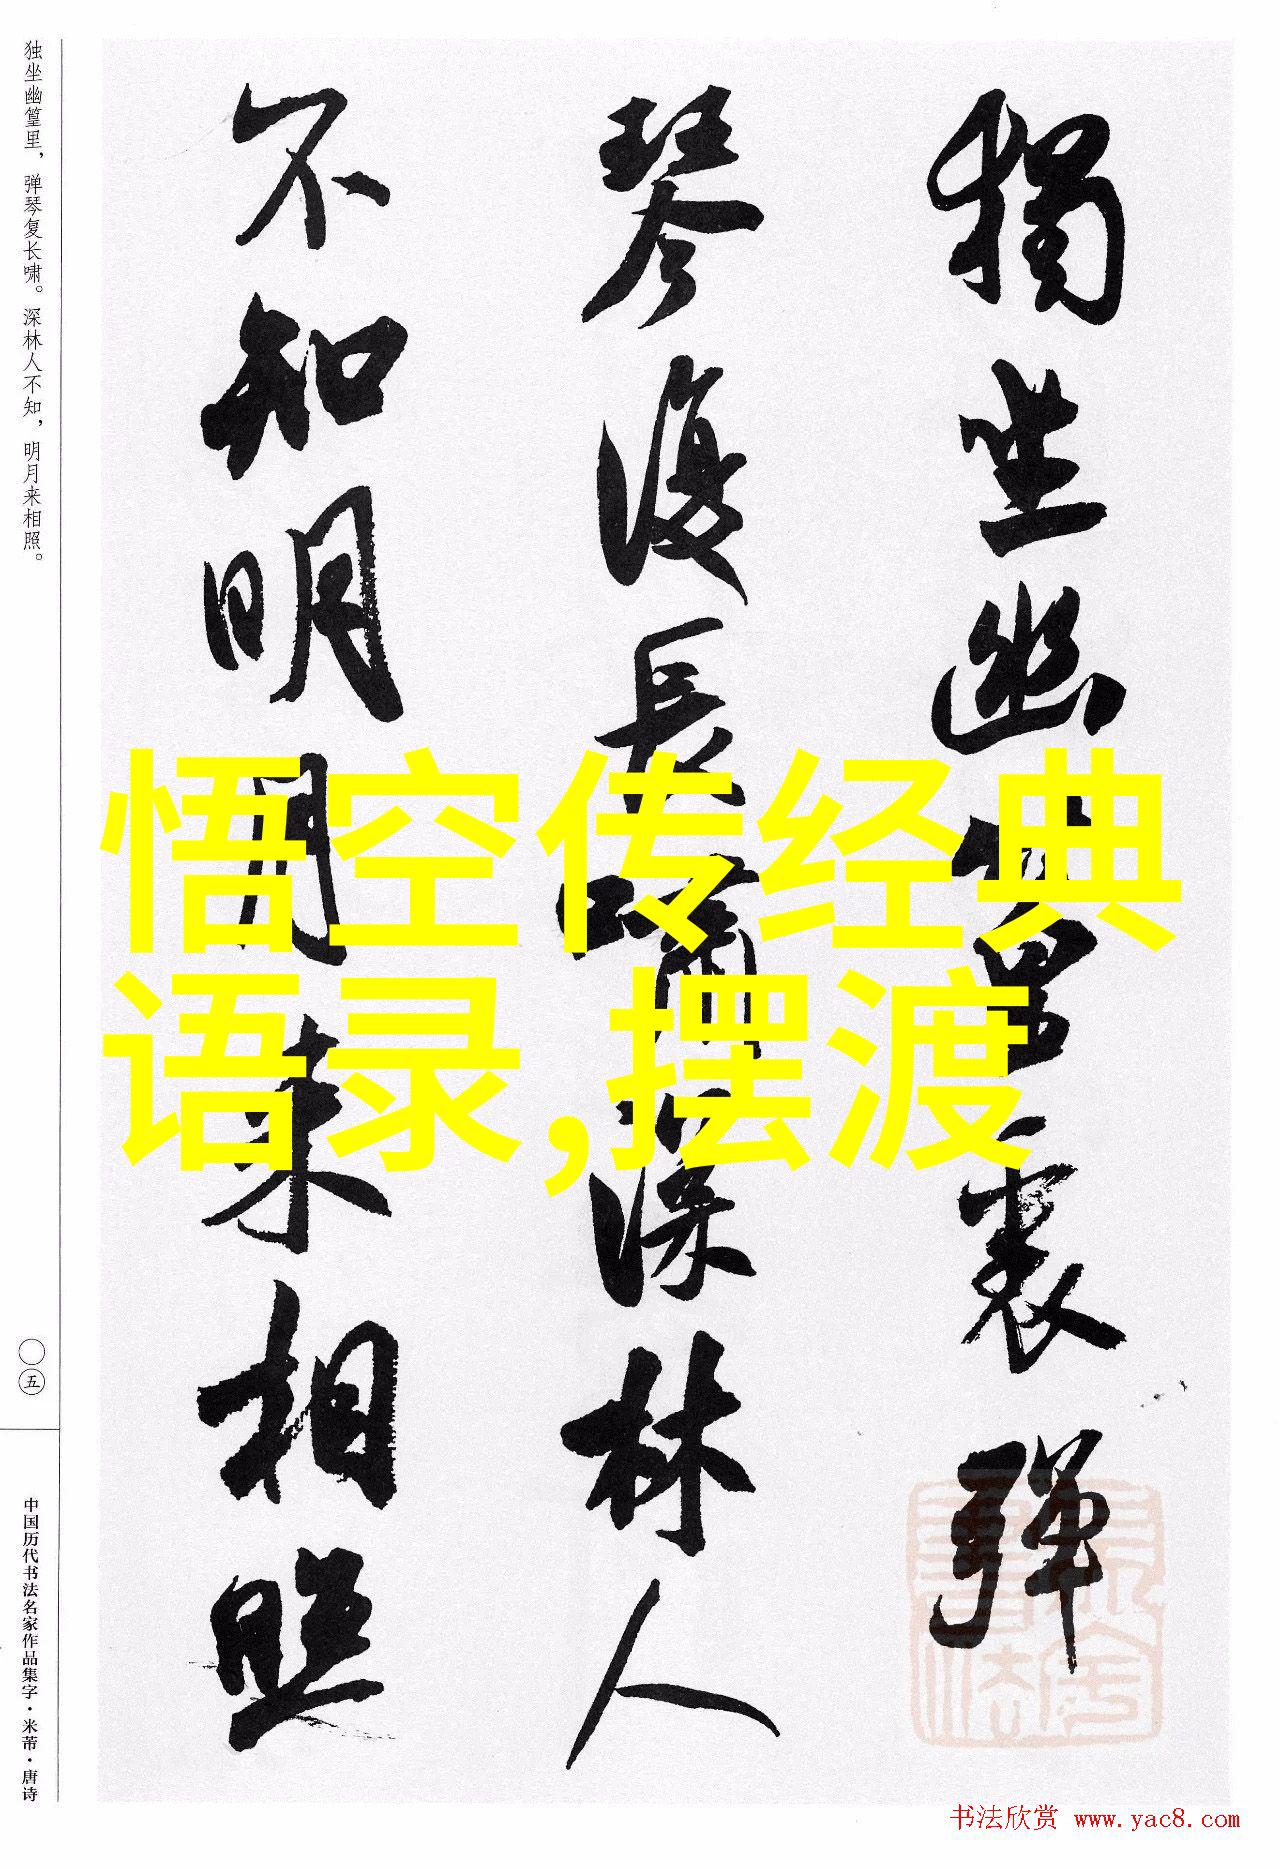 悟空传经典
语录,摆渡
獨坐幽篁裏彈
琴復長嘯深林人
不知明月来相照
独坐幽篁里，弹琴复长啸。深林人不知，明月来相照。
〇五
中国历代书法名家作品集字·米芾·唐诗
书法欣赏 www.yac8.com